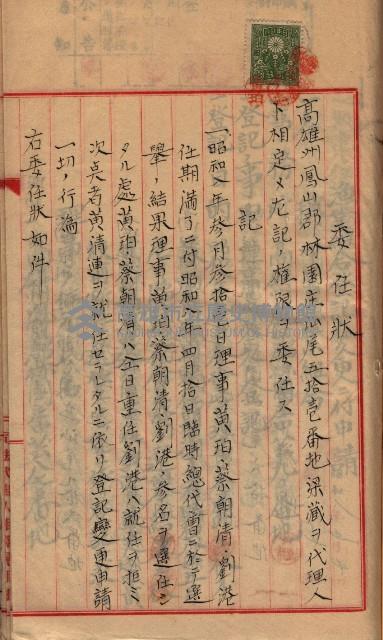 委任狀
高雄州鳳山郡林園庄汕尾五拾壱番地梁藏ヲ代理人
ト相定メ左記ノ權限ヲ委任ス
記
一、昭和八年参月参拾壱日理事黄珀、蔡朝清、劉港
任期滿了ニ付昭和八年四月拾日臨時總代會ニ於テ選
擧ノ結果理事黄珀、蔡朝清、劉港、参名ヲ選任シ
タル處黄珀、蔡朝清ハ仝日重任劉港ハ就任ヲ拒ミ
次点者黄清連ヲ就任セラレタルニ依リ登記變更申請
一切ノ行為
右委任狀如件